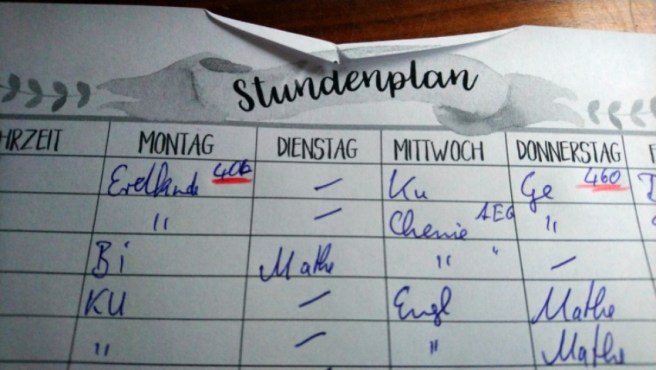 Stundenplan
HRZEIT MONTAG DIENSTAG MITTWOCH DONNERSTAG F
Erdkunde 406 – Ku Ge 460
" – Chemie AEG "
Bi Mathe " " –
KU – Engl Mathe
" – " Mathe